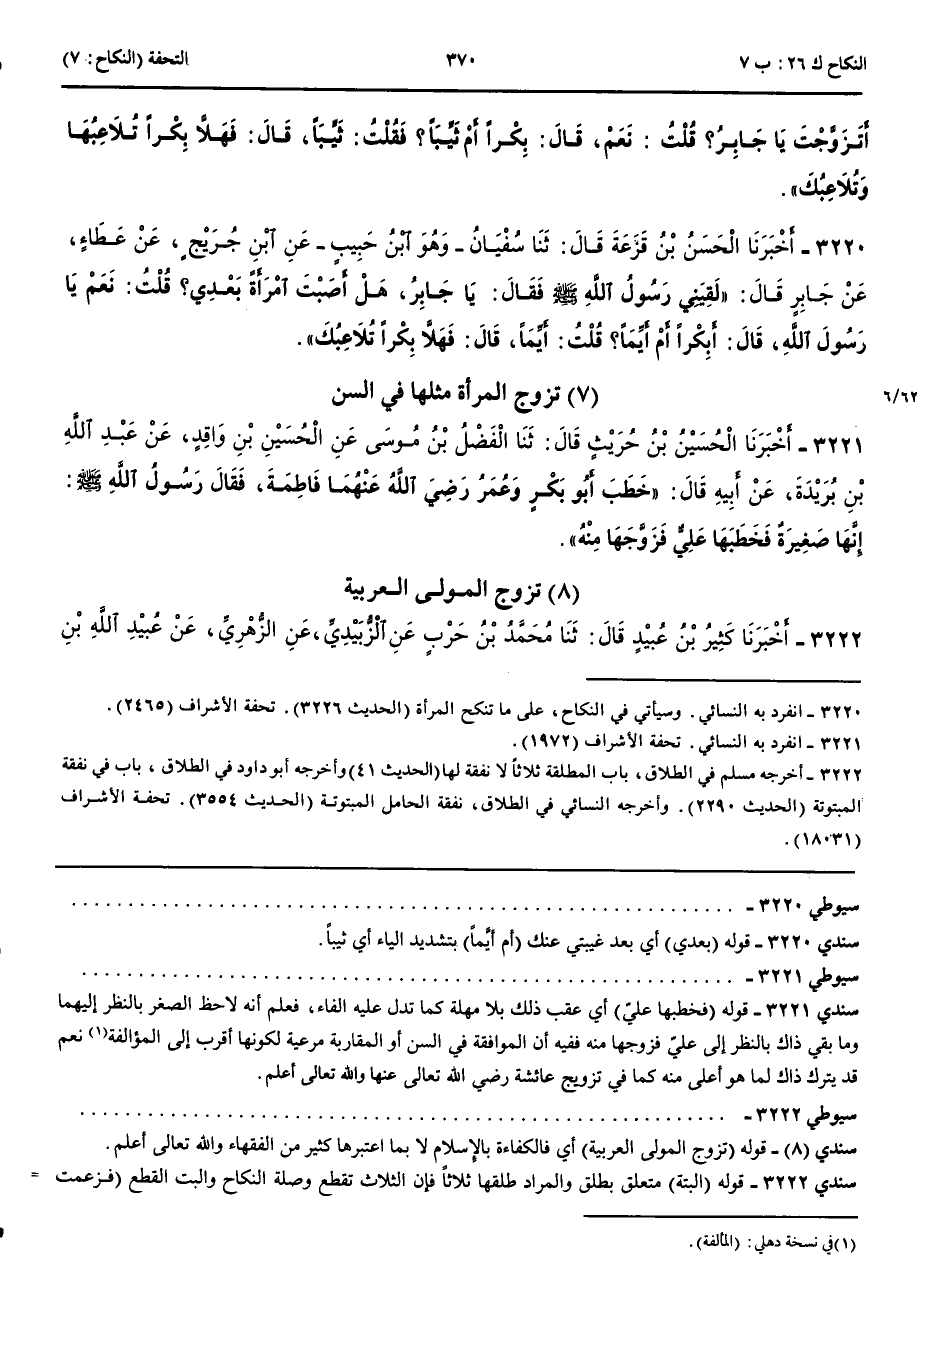 النكاح ك ٢٦ : ب ٧ ٣٧٠ التحفة (النكاح: ٧)
أَتَزَوَّجْتَ يَا جَابِرُ؟ قُلْتُ : نَعَمْ، قَالَ: بِكْراً أَمْ ثَيِّبَاً؟ فَقُلْتُ: ثَيِّبَاً، قَالَ: فَهَلَّا بِكْراً تُلَاعِبُهَا
وَتُلَاعِبُكَ».
٣٢٢٠ ـ أَخْبَرَنَا الْحَسَنُ بْنُ قَزَعَةَ قَالَ: ثَنَا سُفْيَانُ ـ وَهُوَ ٱبْنُ حَبِيبٍ ـ عَنِ ٱبْنِ جُرَيْجٍ، عَنْ عَطَاءٍ،
عَنْ جَابِرٍ قَالَ: «لَقِيَنِي رَسُولُ ٱللَّهِ ﷺ فَقَالَ: يَا جَابِرُ، هَلْ أَصَبْتَ ٱمْرَأَةً بَعْدِي؟ قُلْتُ: نَعَمْ يَا
رَسُولَ ٱللَّهِ، قَالَ: أَبِكْراً أَمْ أَيِّمَاً؟ قُلْتُ: أَيِّمَاً، قَالَ: فَهَلَّا بِكْراً تُلَاعِبُكَ».
(٧) تزوج المرأة مثلها في السن ٦/٦٢
٣٢٢١ ـ أَخْبَرَنَا الْحُسَيْنُ بْنُ حُرَيْثٍ قَالَ: ثَنَا الْفَضْلُ بْنُ مُوسَى عَنِ الْحُسَيْنِ بْنِ وَاقِدٍ، عَنْ عَبْدِ ٱللَّهِ
بْنِ بُرَيْدَةَ، عَنْ أَبِيهِ قَالَ: «خَطَبَ أَبُو بَكْرٍ وَعُمَرُ رَضِيَ ٱللَّهُ عَنْهُمَا فَاطِمَةَ، فَقَالَ رَسُولُ ٱللَّهِ ﷺ:
إِنَّهَا صَغِيرَةٌ فَخَطَبَهَا عَلِيٌّ فَزَوَّجَهَا مِنْهُ».
(٨) تزوج المولى العربية
٣٢٢٢ ـ أَخْبَرَنَا كَثِيرُ بْنُ عُبَيْدٍ قَالَ: ثَنَا مُحَمَّدُ بْنُ حَرْبٍ عَنِ ٱلْزُّبَيْدِيِّ، عَنِ الزُّهْرِيِّ، عَنْ عُبَيْدِ ٱللَّهِ بْنِ
٣٢٢٠ ـ انفرد به النسائي. وسيأتي في النكاح، على ما تنكح المرأة (الحديث ٣٢٢٦). تحفة الأشراف (٢٤٦٥).
٣٢٢١ ـ انفرد به النسائي. تحفة الأشراف (١٩٧٢).
٣٢٢٢ ـ أخرجه مسلم في الطلاق، باب المطلقة ثلاثاً لا نفقة لها (الحديث ٤١) وأخرجه أبو داود في الطلاق، باب في نفقة
المبتوتة (الحديث ٢٢٩٠). وأخرجه النسائي في الطلاق، نفقة الحامل المبتوتة (الحديث ٣٥٥٤). تحفة الأشراف
(١٨٠٣١).
سيوطي ٣٢٢٠ ـ ..........................................................
سندي ٣٢٢٠ ـ قوله (بعدي) أي بعد غيبتي عنك (أم أيَّماً) بتشديد الياء أي ثيباً.
سيوطي ٣٢٢١ ـ ..........................................................
سندي ٣٢٢١ ـ قوله (فخطبها عليّ) أي عقب ذلك بلا مهلة كما تدل عليه الفاء، فعلم أنه لاحظ الصغر بالنظر إليهما
وما بقي ذاك بالنظر إلى عليّ فزوجها منه ففيه أن الموافقة في السن أو المقاربة مرعية لكونها أقرب إلى المؤالفة(١) نعم
قد يترك ذاك لما هو أعلى منه كما في تزويج عائشة رضي الله تعالى عنها والله تعالى أعلم.
سيوطي ٣٢٢٢ ـ ..........................................................
سندي (٨) ـ قوله (تزوج المولى العربية) أي فالكفاءة بالإسلام لا بما اعتبرها كثير من الفقهاء والله تعالى أعلم.
سندي ٣٢٢٢ ـ قوله (البتة) متعلق بطلق والمراد طلقها ثلاثاً فإن الثلاث تقطع وصلة النكاح والبت القطع (فزعمت =
(١) في نسخة دهلي: (المألفة).